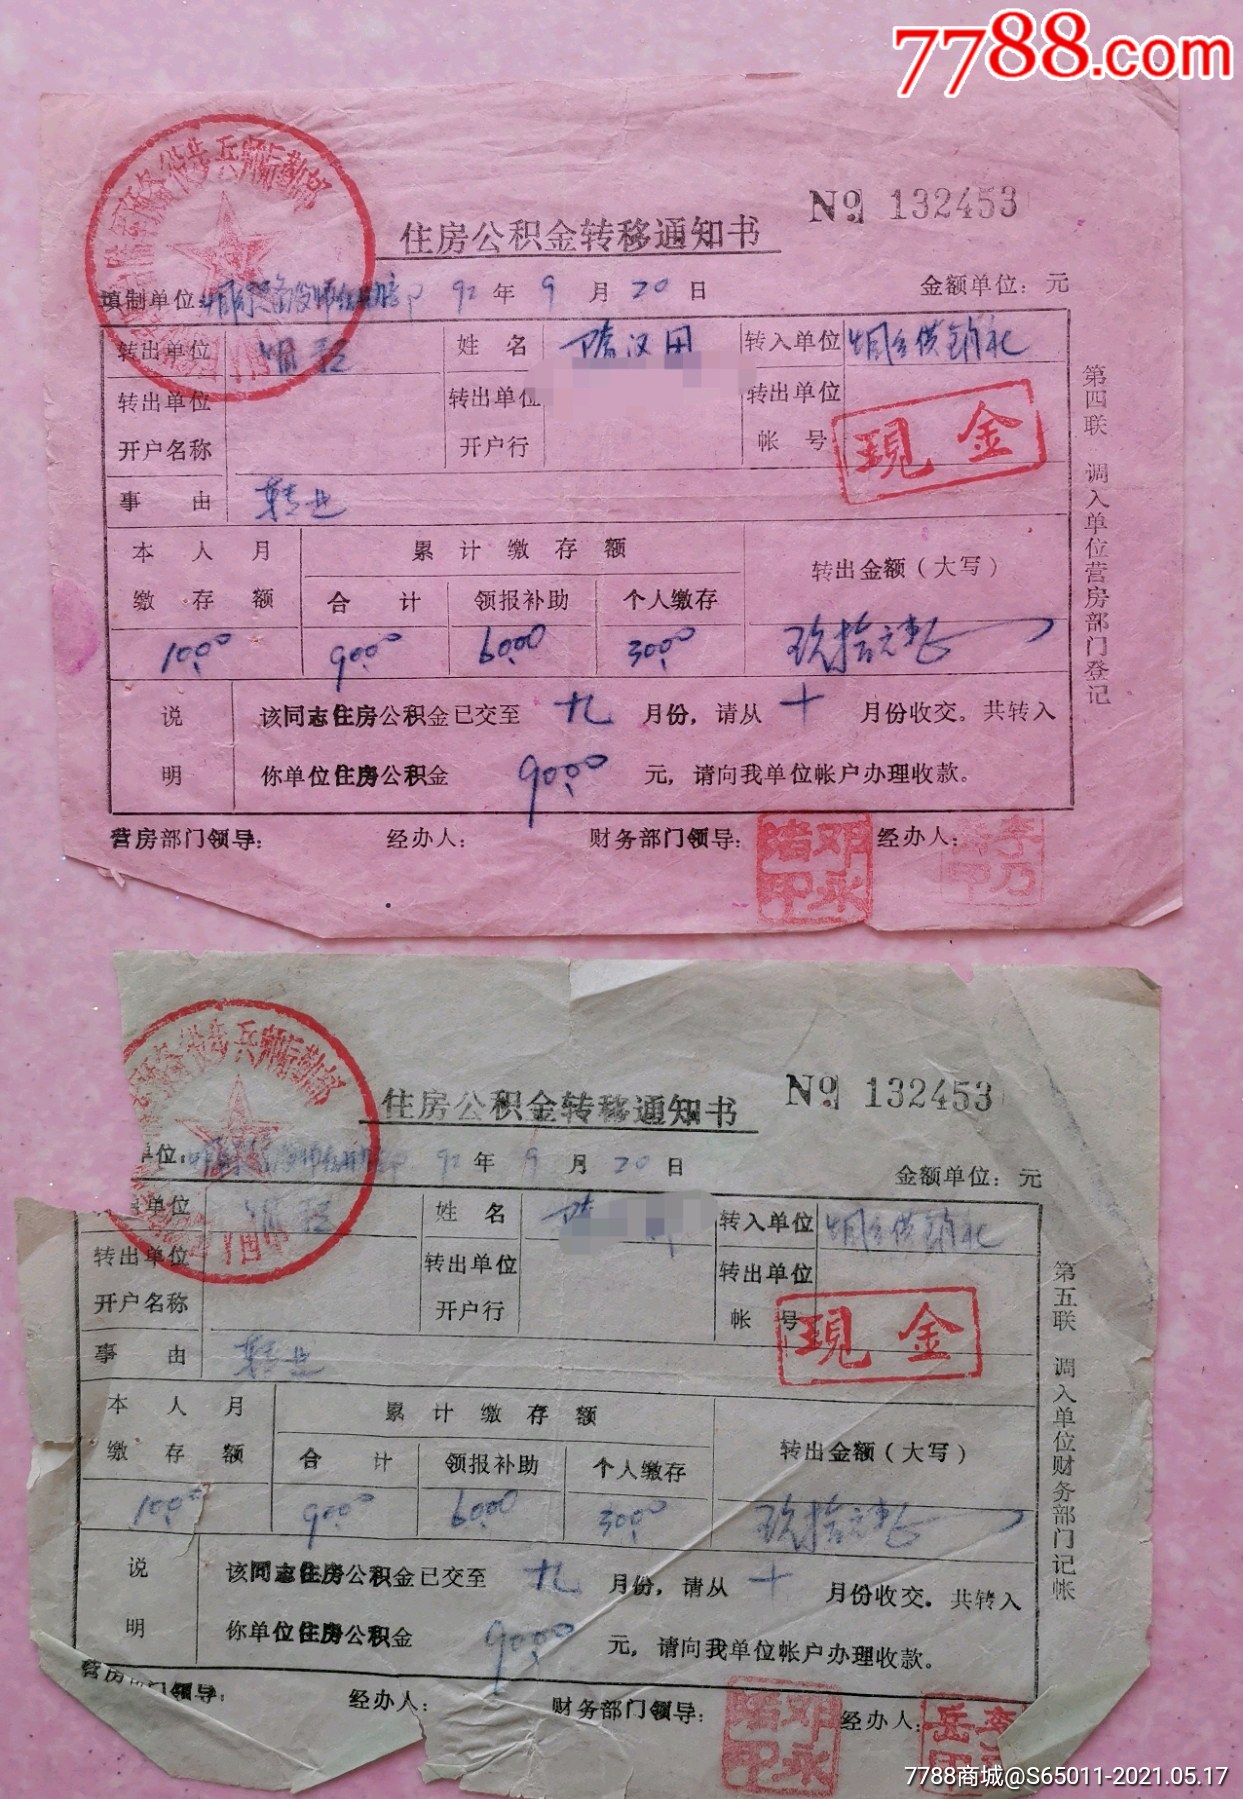 7788.com
预备役步兵师后勤部
№ 132453
住房公积金转移通知书
填制单位: 92年9月20日 金额单位: 元
转出单位 姓名 隋汉田 转入单位 烟台供销社
转出单位 转出单位 转出单位
开户名称 开户行 帐号
现金
事由 转业
本人月 累计缴存额
缴存额 合计 领报补助 个人缴存 转出金额(大写)
10.00 90.00 60.00 30.00 玖拾元整
说 该同志住房公积金已交至 九 月份, 请从 十 月份收交. 共转入
明 你单位住房公积金 90.00 元, 请向我单位帐户办理收款.
营房部门领导: 经办人: 财务部门领导: 经办人:
第四联 调入单位营房部门登记
预备役步兵师后勤部
№ 132453
住房公积金转移通知书
单位: 92年9月20日 金额单位: 元
单位 姓名 隋 转入单位 烟台供销社
转出单位 转出单位 转出单位
开户名称 开户行 帐号
现金
事由 转业
本人月 累计缴存额
缴存额 合计 领报补助 个人缴存 转出金额(大写)
10.00 90.00 60.00 30.00 玖拾元整
说 该同志住房公积金已交至 九 月份, 请从 十 月份收交. 共转入
明 你单位住房公积金 90.00 元, 请向我单位帐户办理收款.
营房部门领导: 经办人: 财务部门领导: 经办人:
第五联 调入单位财务部门记帐
7788商城@S65011-2021.05.17